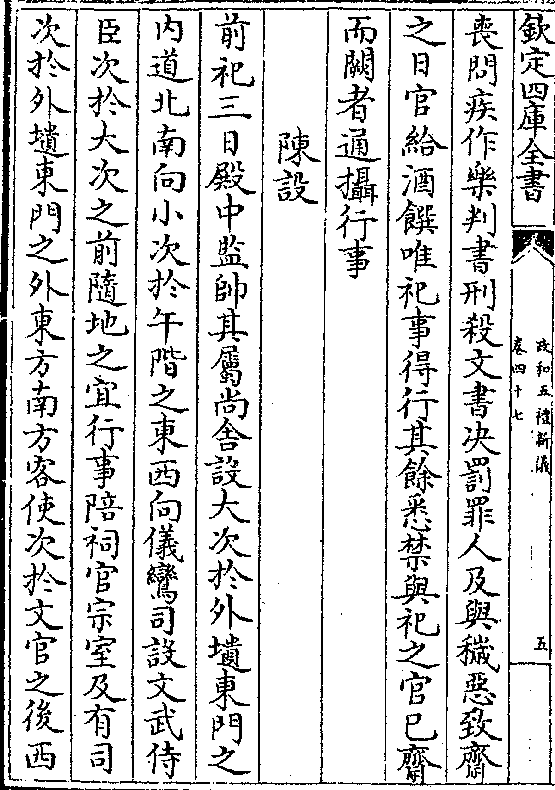 欽定四庫全書
政和五禮新儀
卷四十七
五
喪問疾作樂判書刑殺文書决罰罪人及與穢惡致齋
之日官給酒饌唯祀事得行其餘悉禁與祀之官已齋
而闕者通攝行事
陳設
前祀三日殿中監帥其屬尚舍設大次於外壝東門之
内道北南向小次於午階之東西向儀鸞司設文武侍
臣次於大次之前隨地之宜行事陪祠官宗室及有司
次於外壝東門之外東方南方客使次於文官之後西